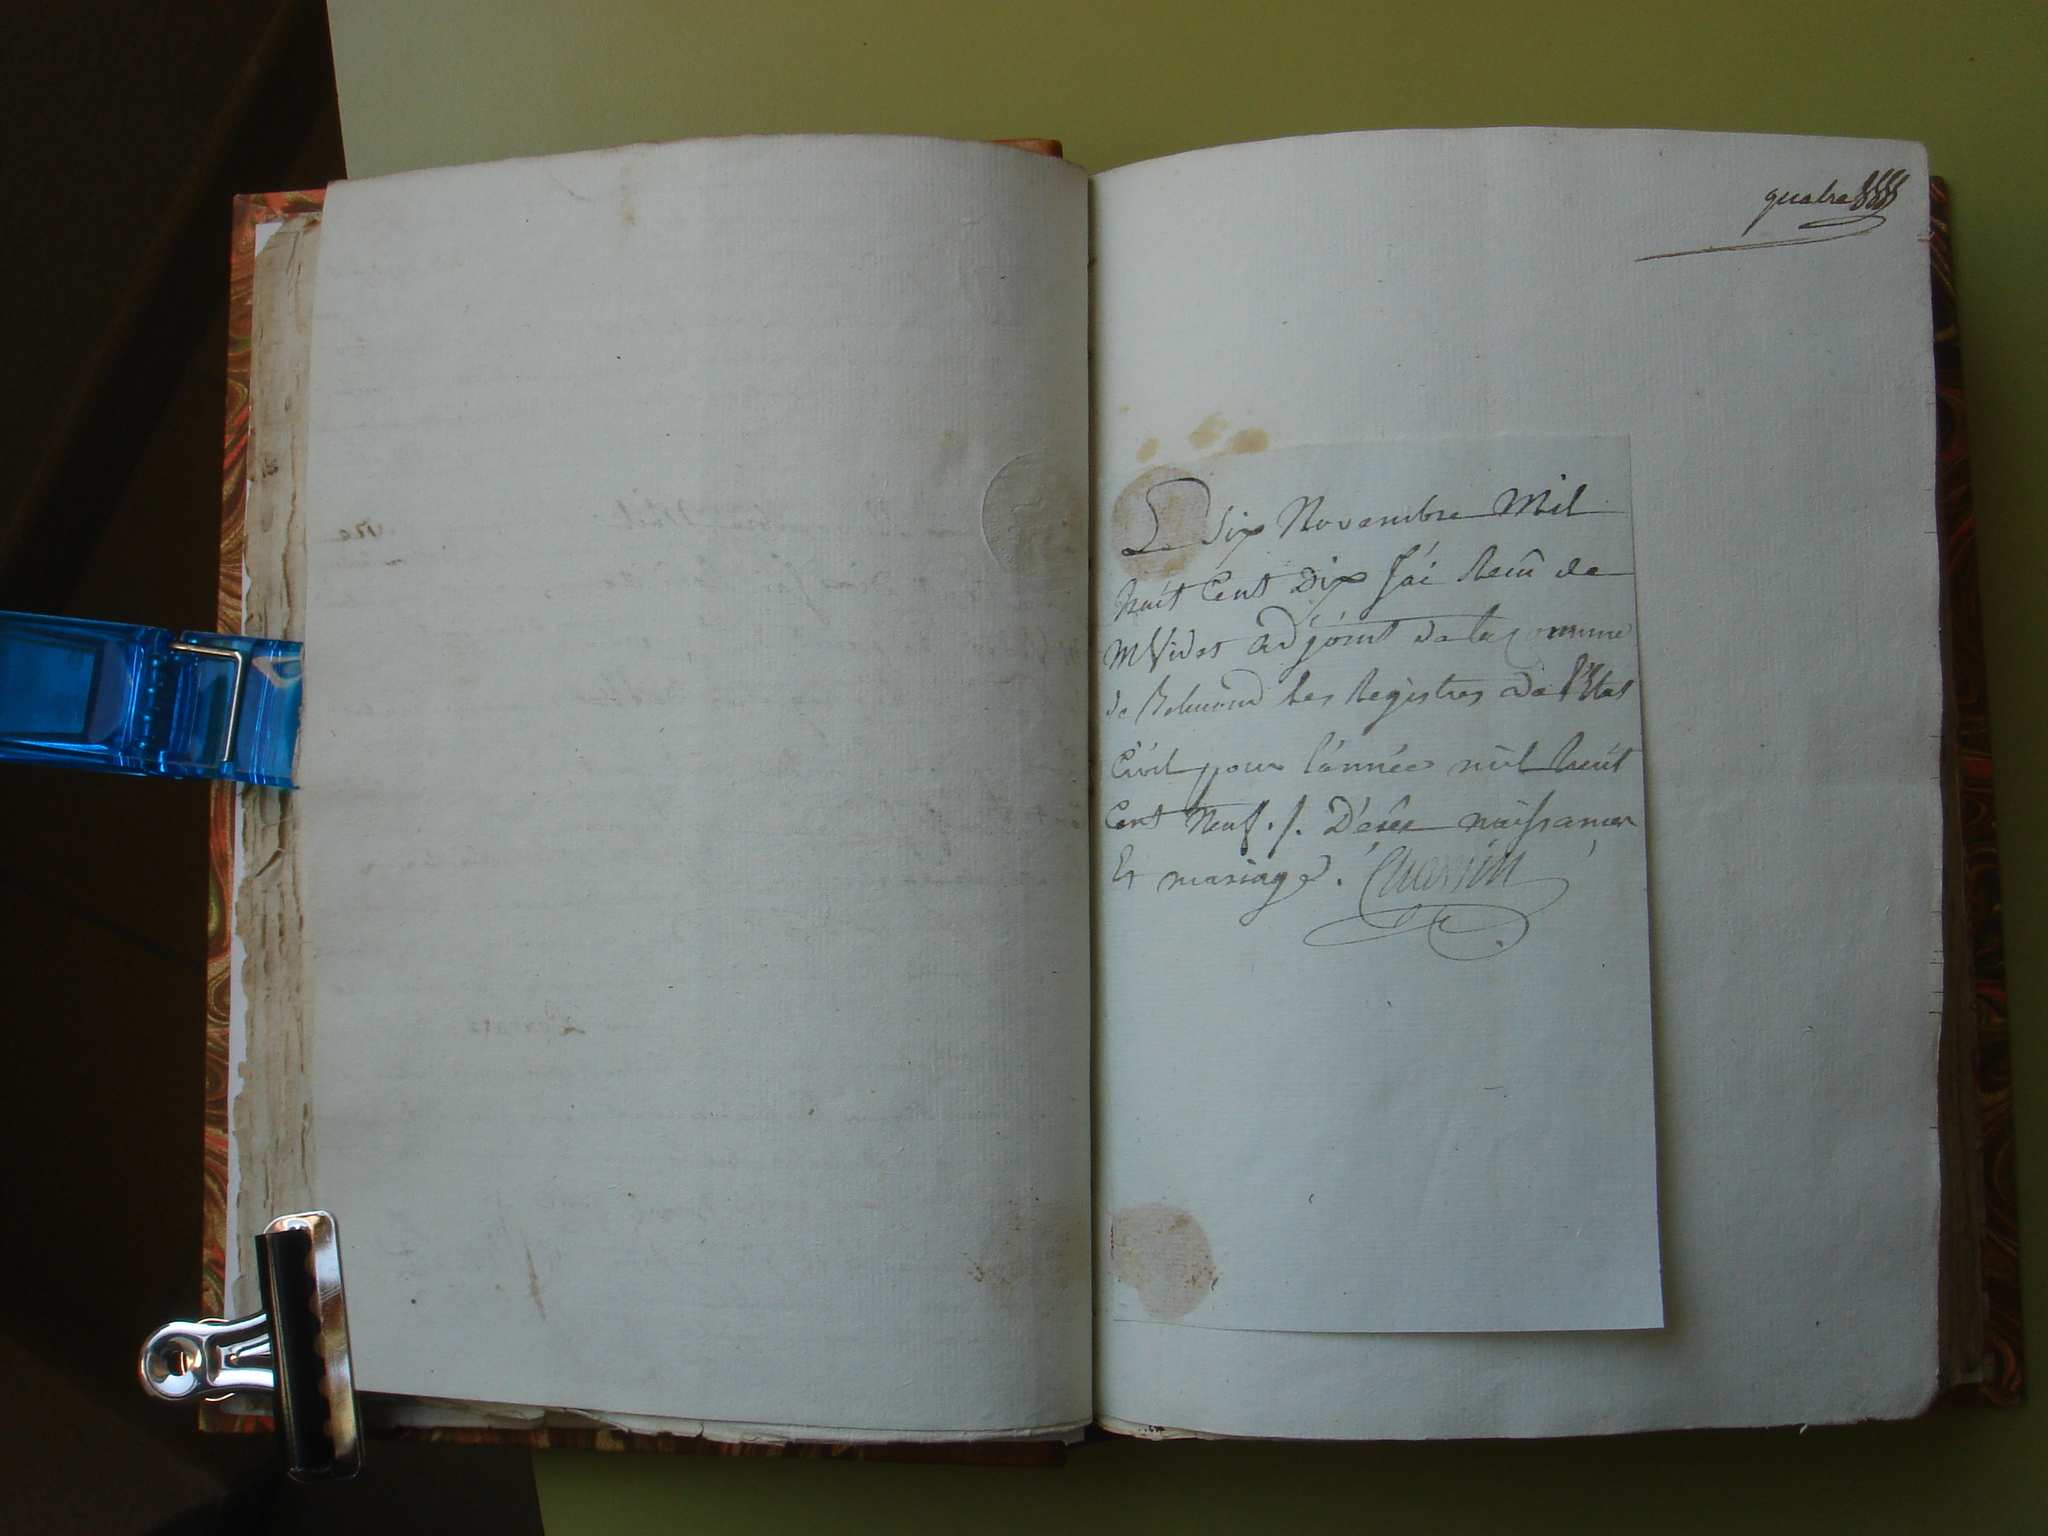 quatre
Le six Novembre Mil
huit Cent Dix J'ai Recû de
Mr Vidas adjoint de la Commune
de Belmond les Registres de l'Etat
Civil pour l'année mil huit
Cent Neuf. /. Décès naissances
Et mariage.